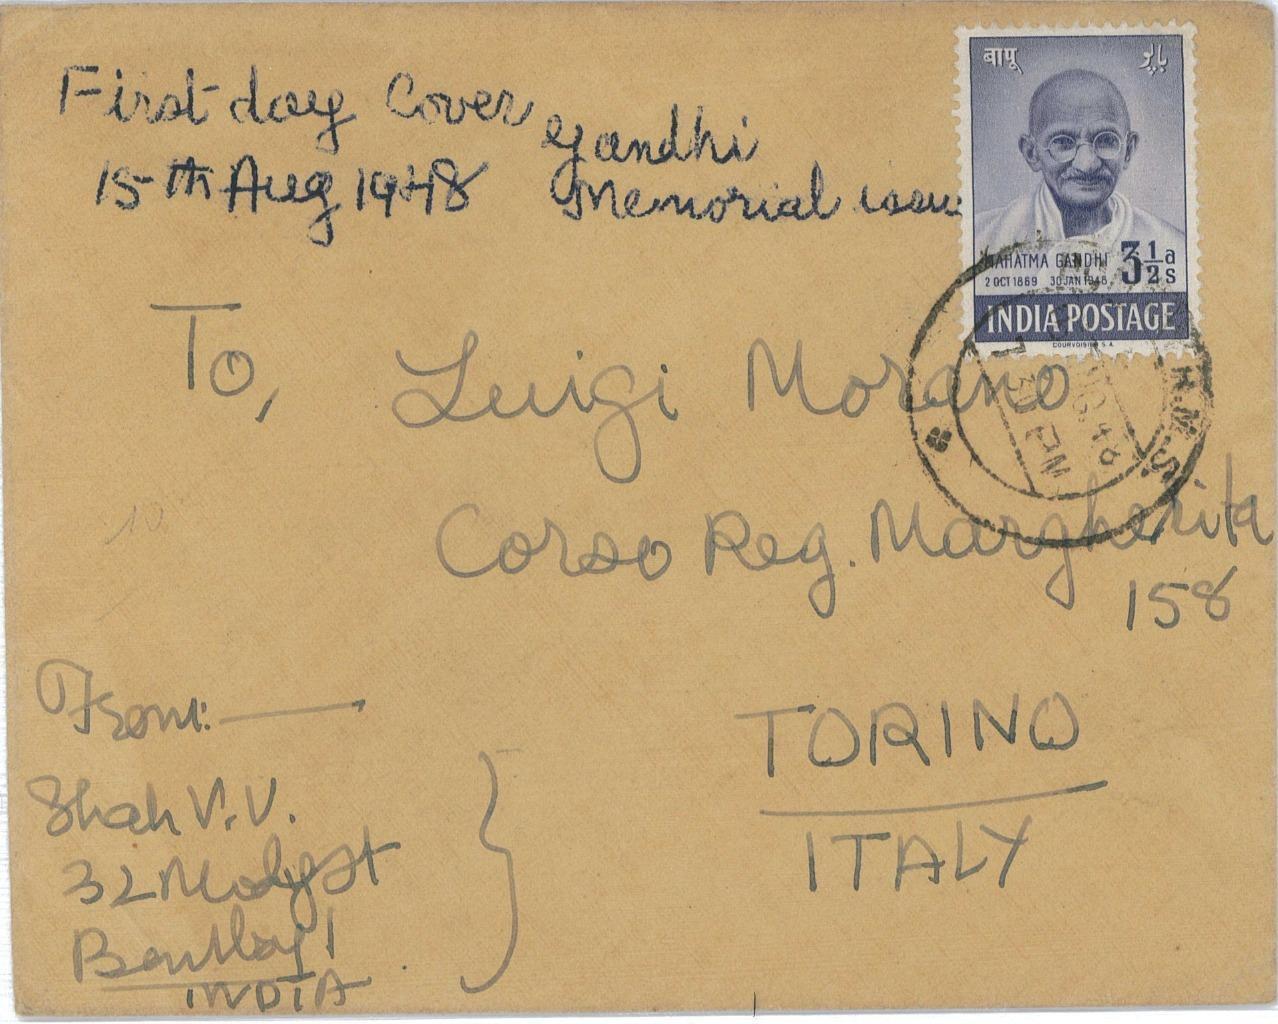 First day Cover Gandhi
15th Aug 1948 Memorial issue
बापू باپو
MAHATMA GANDHI 3 1/2 as
2 OCT 1869 30 JAN 1948
INDIA POSTAGE
COURVOISIER S.A.
R.M.S.
AUG. 48
7 30 PM
To, Luigi Morano
Corso Reg. Margherita
158
TORINO
ITALY
10
From:
Shah V.V.
32 Mody st
Bombay 1
INDIA